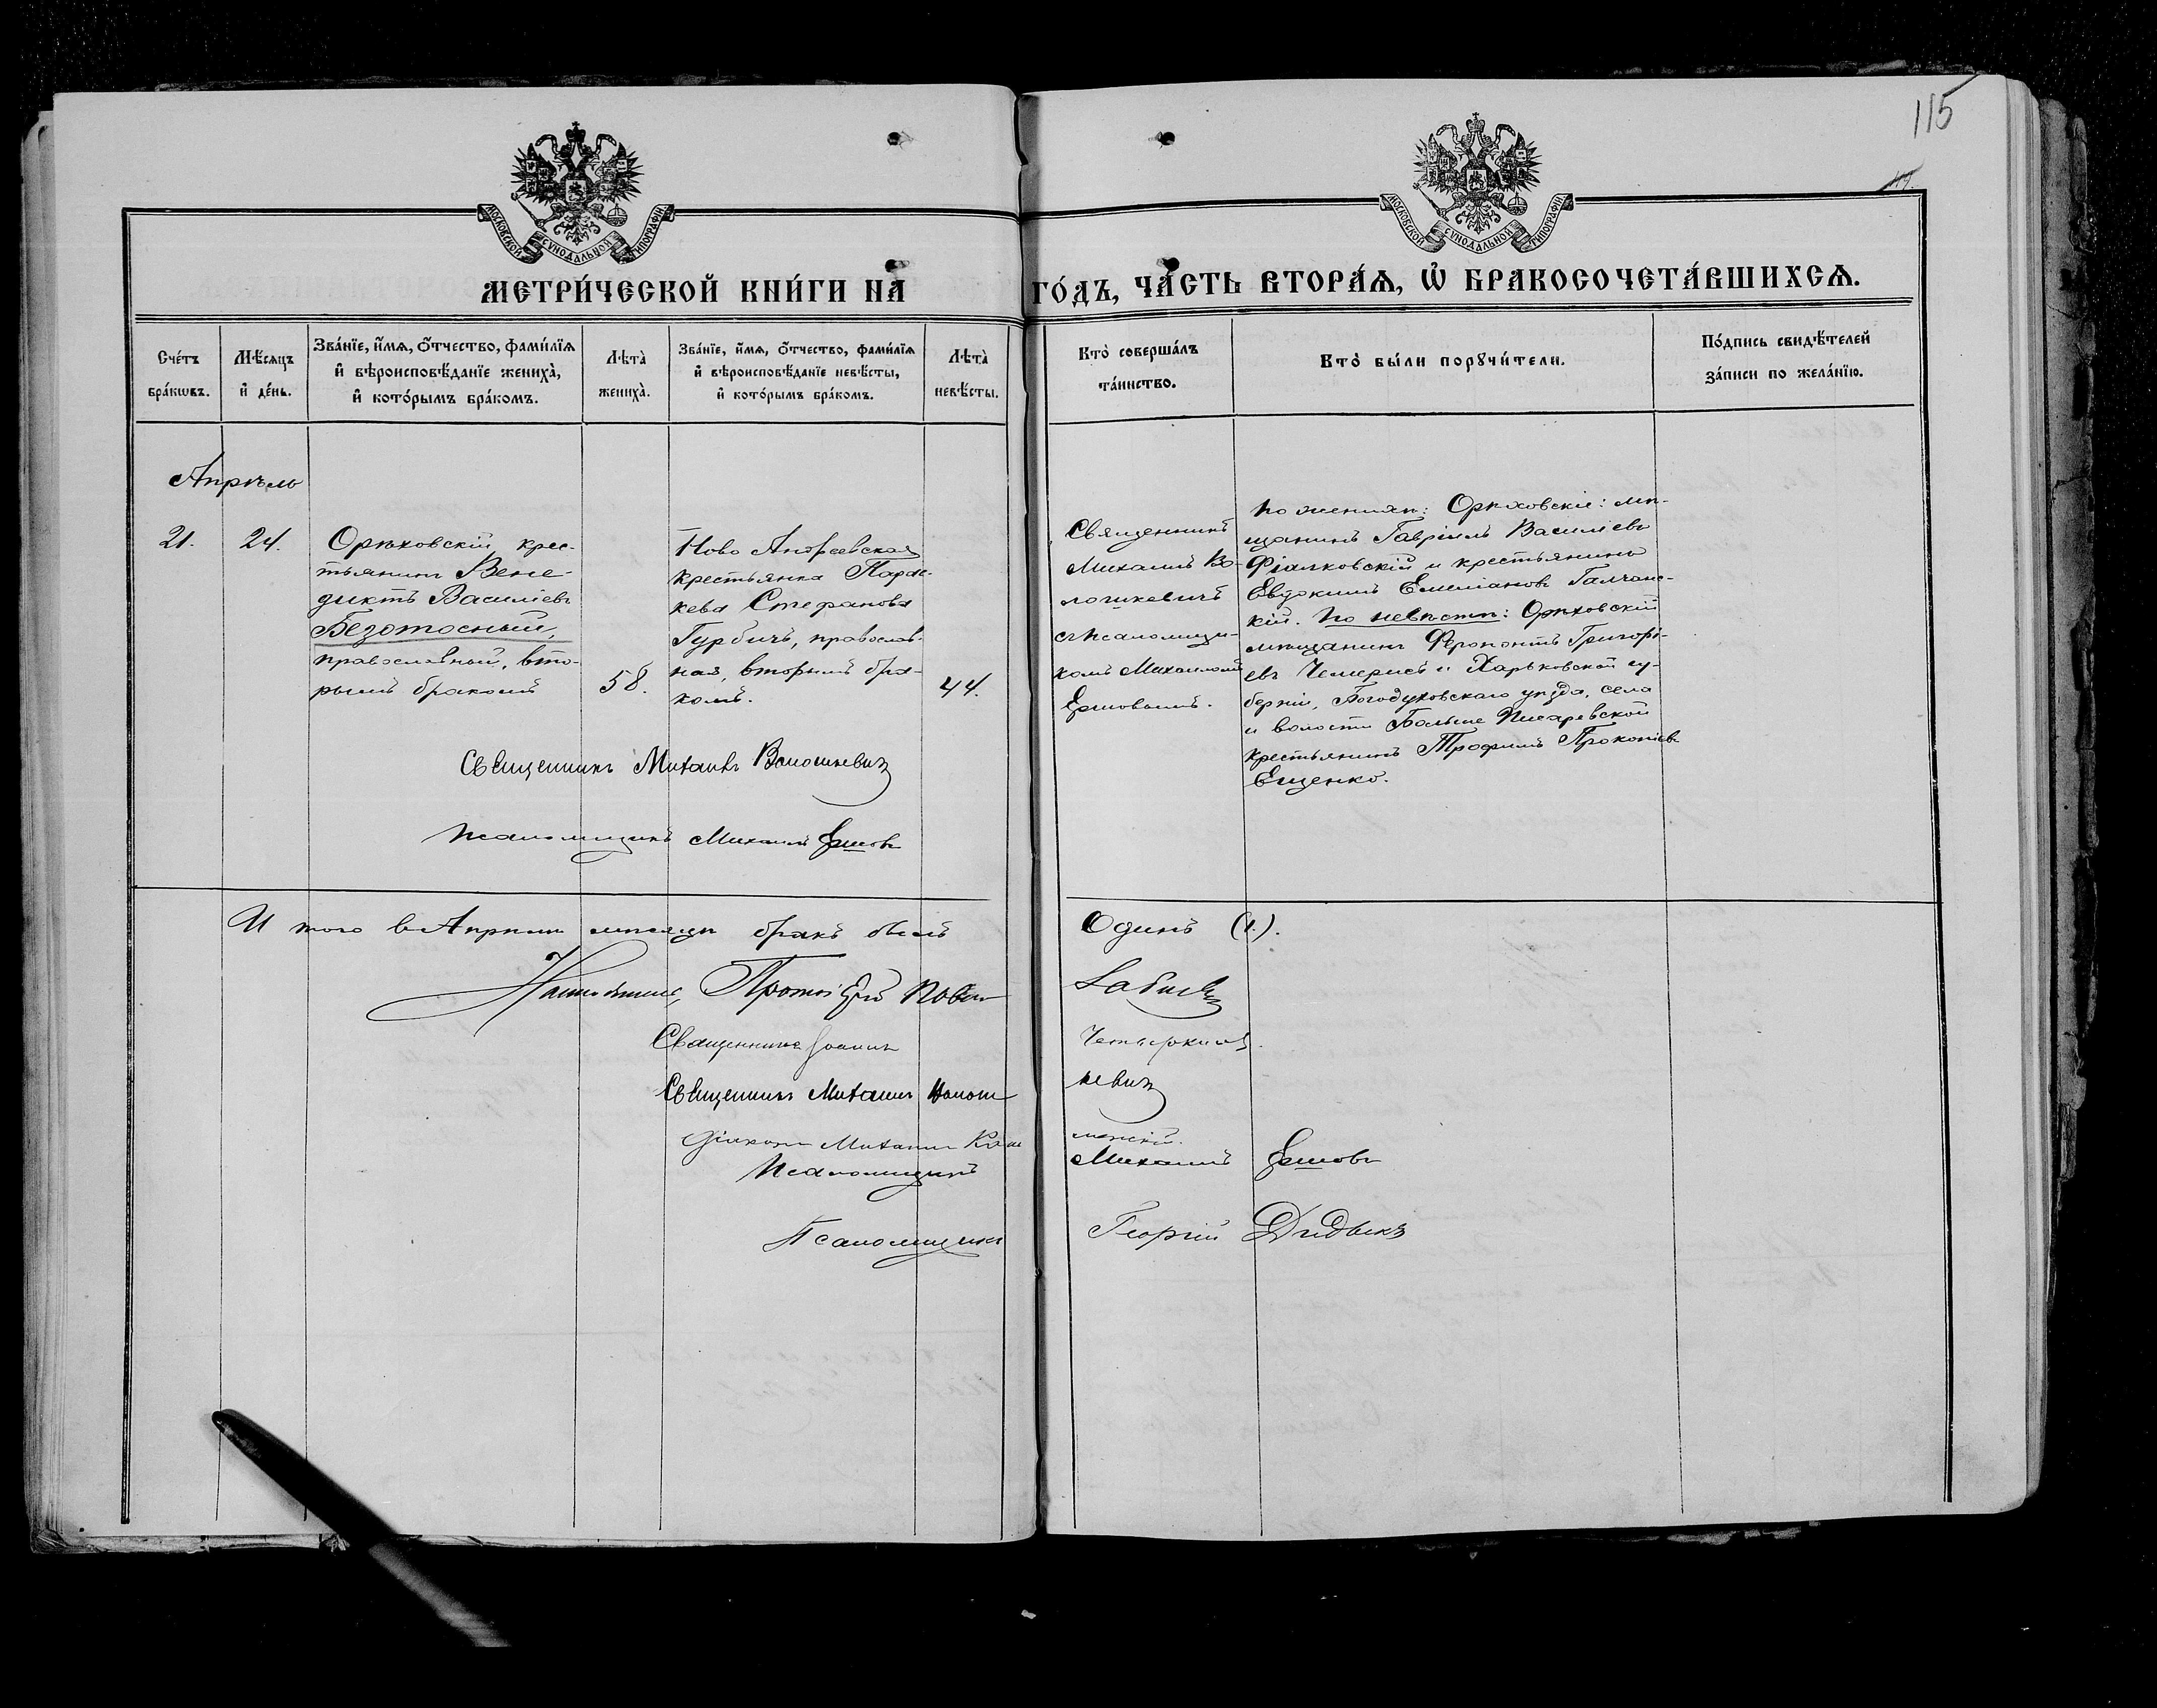 115
МОСКОВСКОЙ СѴНОДАЛЬНОЙ ТИПОГРАФІИ
МОСКОВСКОЙ СѴНОДАЛЬНОЙ ТИПОГРАФІИ
МЕТРИ́ЧЕСКОЙ КНИ́ГИ НА
ГО́ДЪ, ЧА́СТЬ ВТОРА́Ѧ, Ѽ БРАКОСОЧЕТА́ВШИХСѦ.
Сче́тъ
бра́кѡвъ.
Мѣ́сѧцъ
и҆ де́нь.
Зва́нїе, и҆́мѧ, о҆́тчество, фами́лїѧ
и҆ вѣроисповѣ́данїе женихà,
и҆ кото́рымъ бра́комъ.
Лѣ́тà
женихà.
Зва́нїе, и҆́мѧ, о҆́тчество, фами́лїѧ
и҆ вѣроисповѣ́данїе невѣ́сты,
и҆ кото́рымъ бра́комъ.
Лѣ́тà
невѣ́сты.
Кто̀ соверша́лъ
та́инство.
Кто̀ бы́ли порꙋчи́тели.
По́дпись свидѣ́телей
за́писи по жела́нїю.
Апрѣль
21.
24.
Орѣховскій крес-
тьянинъ Вене-
диктъ Василіевъ
Безотосный,
православный, вто-
рымъ бракомъ
58.
Ново Андреевская
крестьянка Парас-
кева Стефанова
Гурбичъ, православ-
ная, вторымъ бра-
комъ.
44.
Священникъ
Михаилъ Во-
лошкевичъ
съ псаломщи-
комъ Михаиломъ
Ершовымъ.
По женихѣ: Орѣховскіе: мѣ-
щанинъ Гавріилъ Василіевъ
Фіалковскій и крестьянинъ
Евдокимъ Емеліановъ Галчанс-
кій. По невѣстѣ: Орѣховскій
мѣщанинъ Ферапонтъ Григорі-
евъ Чемерисъ и Харьковской гу-
берніи, Богодуховскаго уѣзда, села
и волости Больше Писаревской
крестьянинъ Трофимъ Прокопіевъ
Ещенко.
Священникъ Михаилъ Волошкевич
Псаломщикъ Михаилъ Ершовъ
И того въ Апрѣлѣ мѣсяцѣ бракъ былъ Одинъ (1.).
Протоіерей
Священникъ Іоаннъ
Священникъ Михаилъ Волошкевич
Діаконъ Михаилъ
Псаломщикъ Михаилъ Ершовъ
Псаломщикъ Георгій Дидыкъ